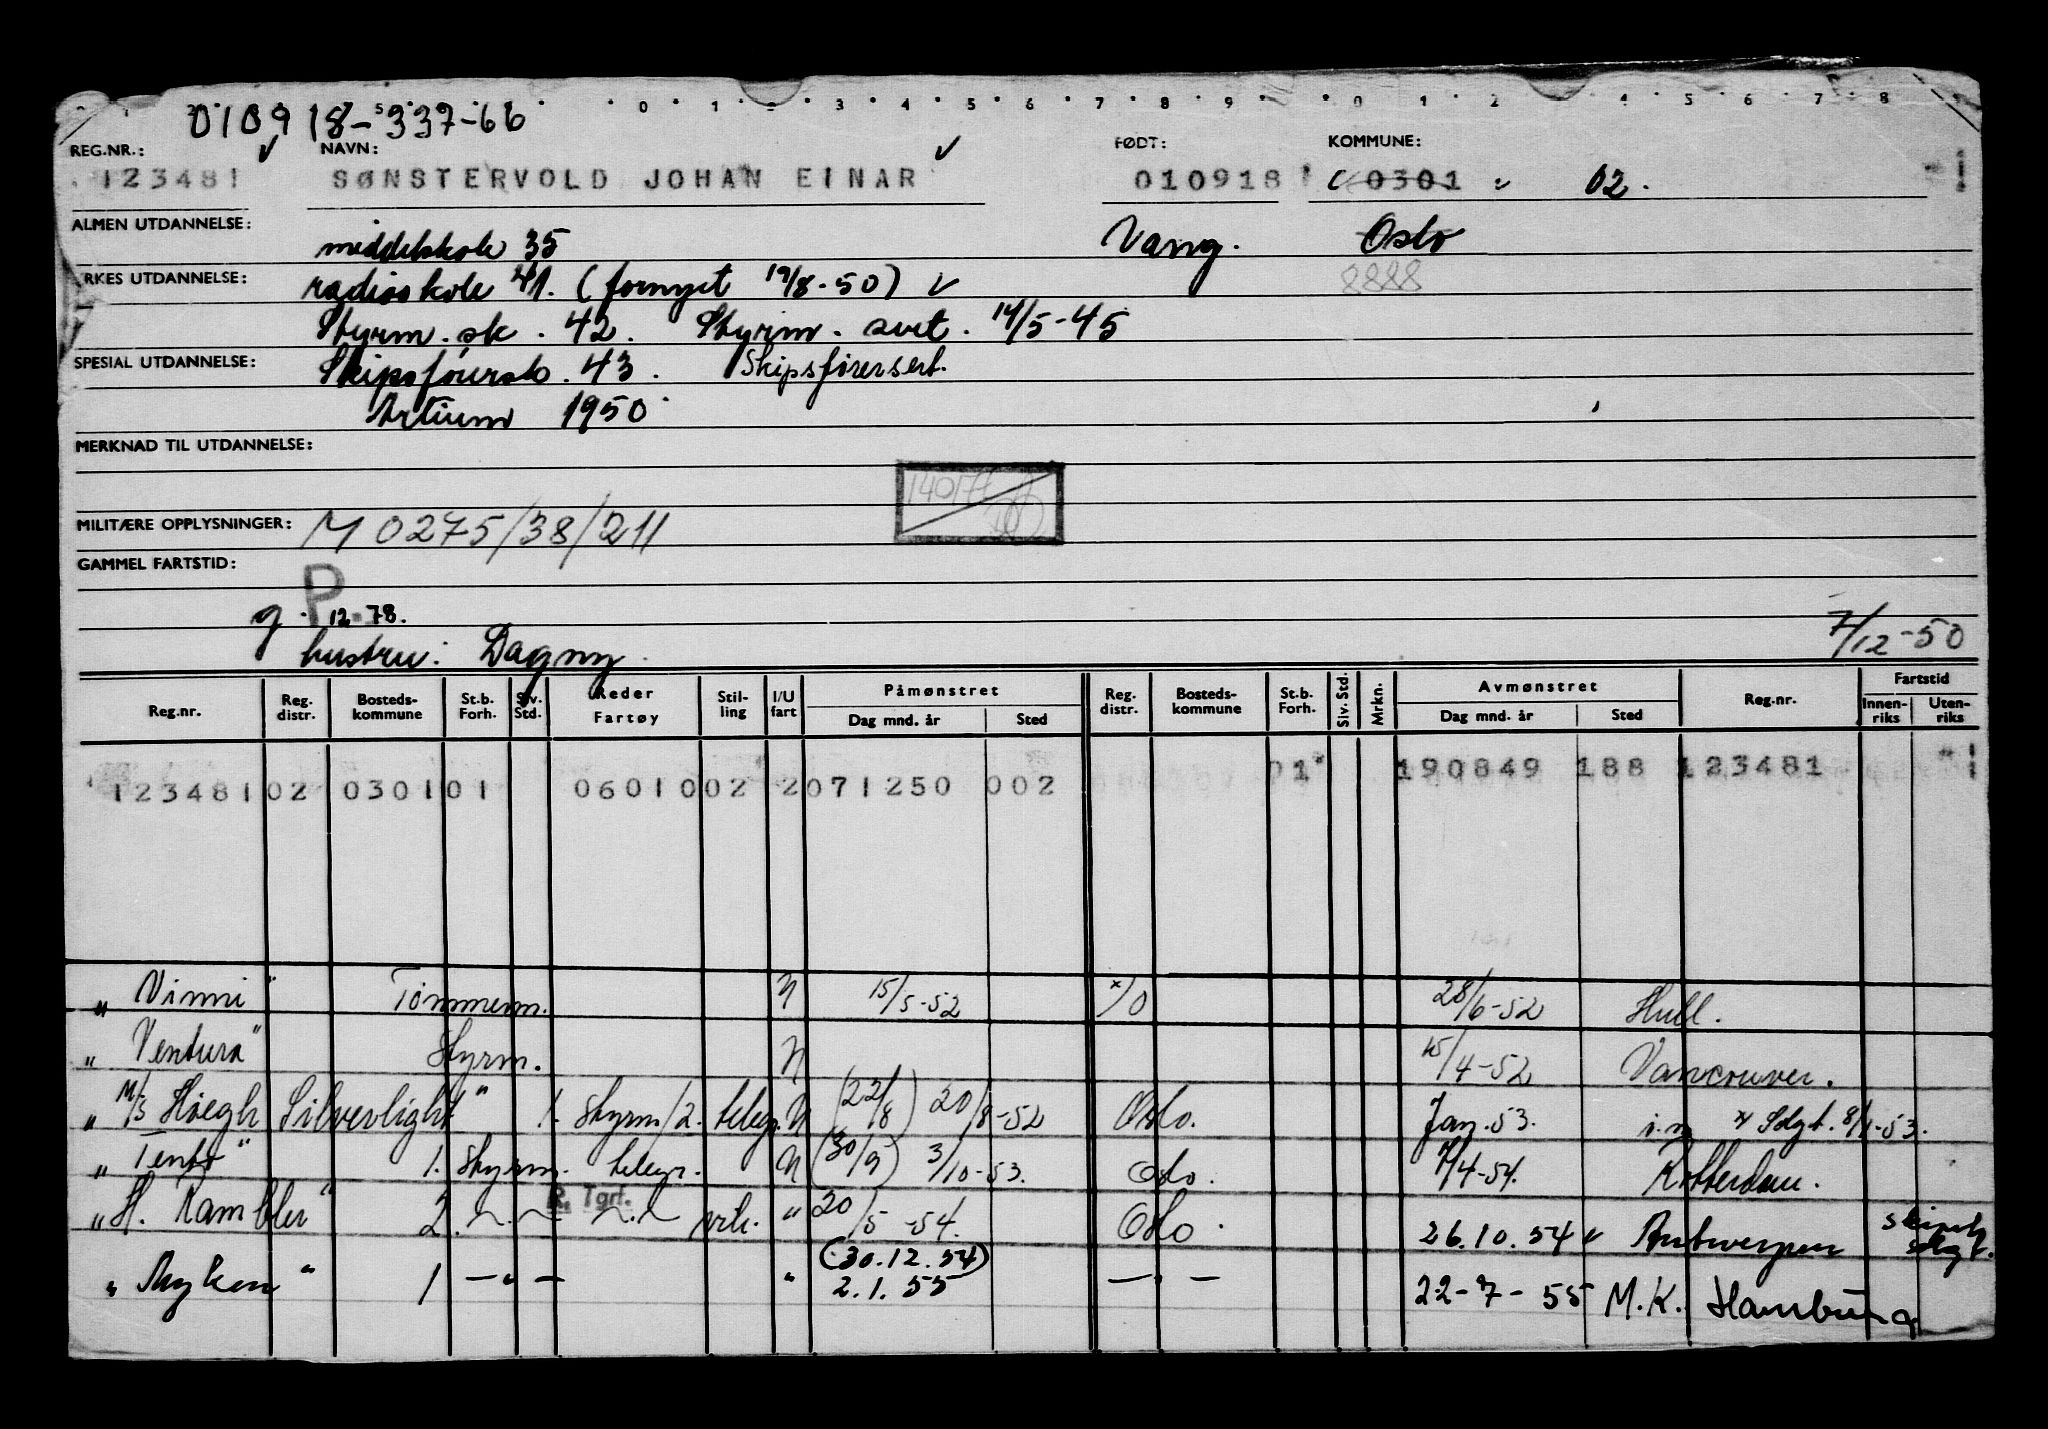 010918-33766
REG.NR.: NAVN: FØDT: KOMMUNE:
123481 SØNSTERVOLD JOHAN EINAR 010918 0301 02.
ALMEN UTDANNELSE: middelskole 35 Vang. Oslo
YRKES UTDANNELSE: radioskole 41. (fornyet 19/8-50) 8888
Styrm.sk. 42. Styrm. sert. 14/5-45
SPESIAL UTDANNELSE: Skipsførersk. 43. Skipsførersert.
Artium 1950
MERKNAD TIL UTDANNELSE:
MILITÆRE OPPLYSNINGER: M 0275/38/211
GAMMEL FARTSTID:
P
g. 12.78.
hustru: Dagny. 7/12-50
Reg.nr. Reg. distr. Bosteds-kommune St.b. Forh. Siv. Std. Reder Fartøy Stil-ling I/U fart Påmønstret Dag mnd. år Sted Reg. distr. Bosteds-kommune St.b. Forh. Siv. Std. Mrkn. Avmønstret Dag mnd. år Sted Reg.nr. Fartstid Innen-riks Uten-riks
01 190849 188 123481
123481 02 0301 01 06010 02 2 071250 002
"Vinni" Tømmerm. N 15/5-52 x/O 28/6-52 Hull.
"Ventura" Styrm. N 15/4-52 Vancouver.
"M/S Høegh Silverlight" 1. Styrm/2. telegr. N (22/8) 20/8-52 Oslo. Jan. 53. 8/1-53.
1. Styrm. telegr. N (30/9) 3/10-53. Oslo. 7/4-54. Rotterdam.
R. Tgrf.
"H. Rambler" 2. " 20/5-54. Oslo. 26.10.54 Antwerpen
"Myken" 1 —"— " (30.12.54) 2.1.55 —"— 22-7-55 M.K. Hamburg